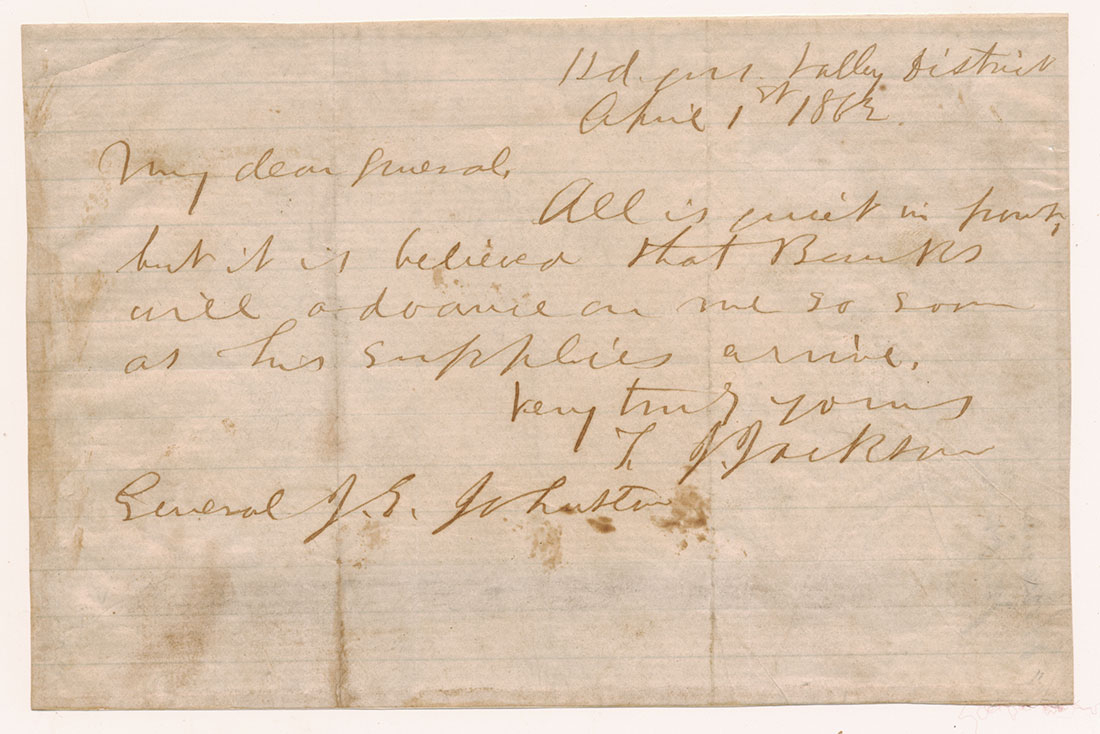 Hd. qrs. Valley District
April 1st 1862.
My dear General,
All is quiet in front,
but it is believed that Banks
will advance on me so soon
as his supplies arrive.
Very truly yours
T. J. Jackson
General J. E. Johnston